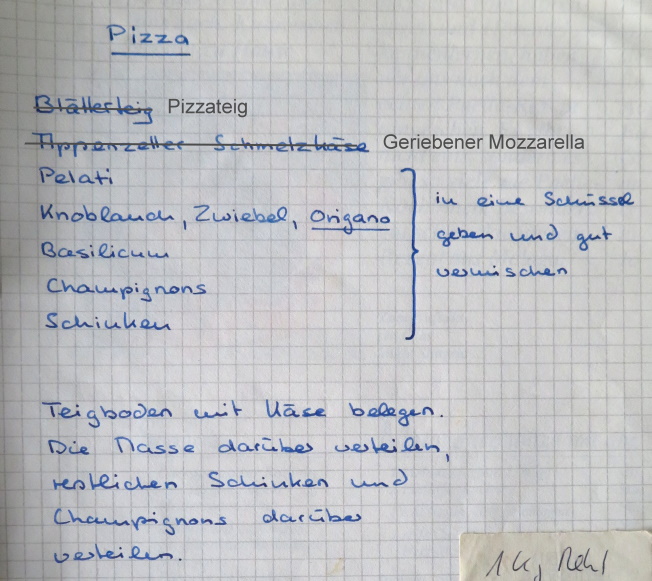 Pizza
Blätterteig Pizzateig
Appenzeller Schmelzkäse Geriebener Mozzarella
Pelati
Knoblauch, Zwiebel, Origano
Basilicum
Champignons
Schinken
in eine Schüssel
geben und gut
vermischen
Teigboden mit Käse belegen.
Die Masse darüber verteilen,
restlichen Schinken und
Champignons darüber
verteilen.
1 kg Mehl